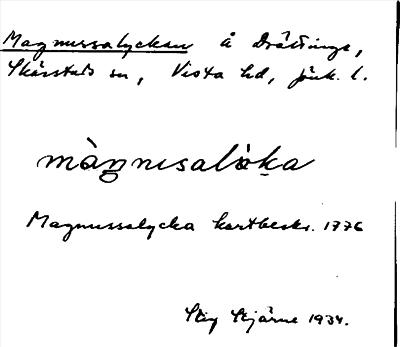 Magnussalyckan å Drättinge,
Skärstads sn, Vista hd, Jönk. l.
màŋnusalỳka
Magnussalycka kartbeskr. 1776
Stig Stjärne 1934.